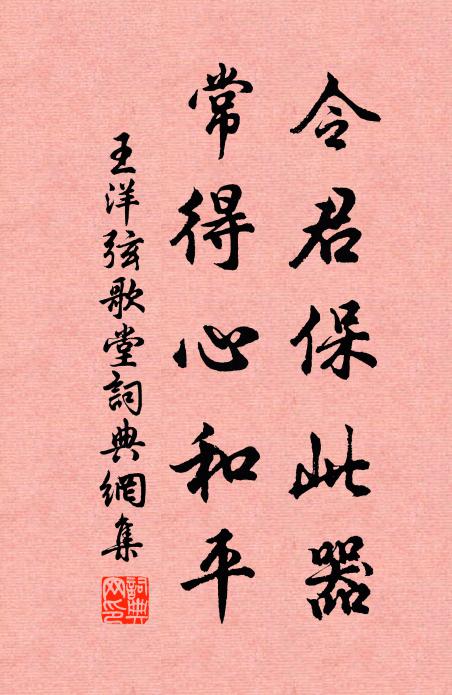 令君保此器
常得心和平
王洋弦歌堂詞典網集
詞典网印